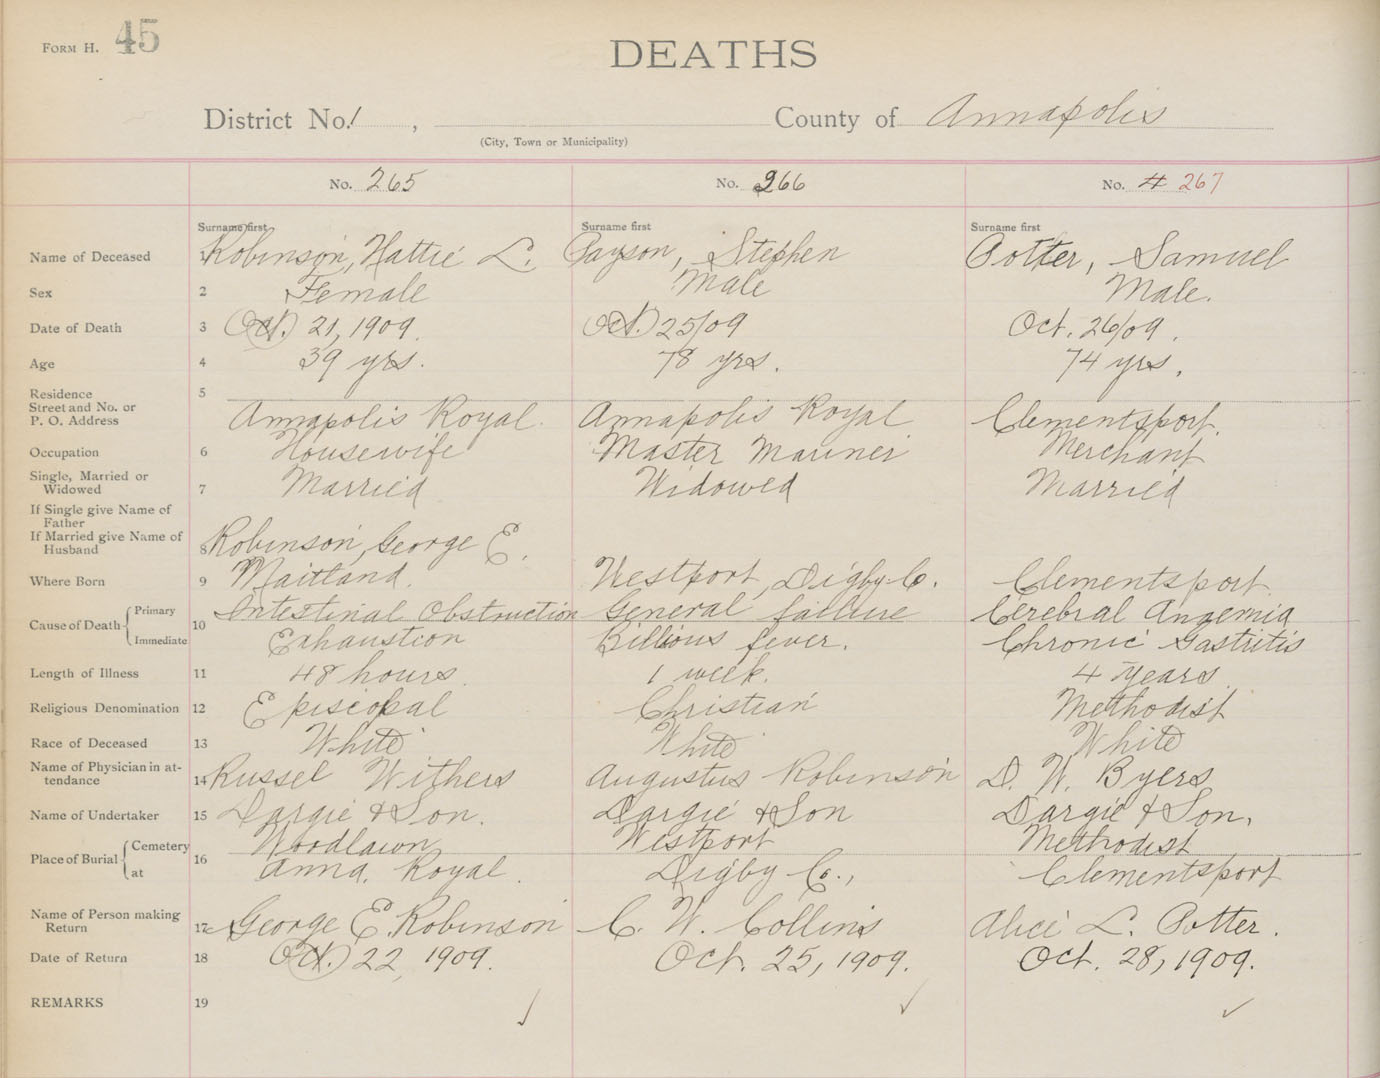 FORM H. 45
DEATHS
District No. 1 , County of Annapolis
(City, Town or Municipality)
No. 265 No. 266 No. # 267
Surname first Surname first Surname first
Name of Deceased 1 Robinson, Hattie L. Payson, Stephen Potter, Samuel
Sex 2 Female Male Male.
Date of Death 3 Oct. 21, 1909. Oct. 25/09 Oct. 26/09.
Age 4 39 yrs. 78 yrs. 74 yrs.
Residence 5
Street and No. or
P. O. Address Annapolis Royal. Annapolis Royal Clementsport.
Occupation 6 Housewife Master Mariner Merchant
Single, Married or
Widowed 7 Married Widowed Married
If Single give Name of
Father
If Married give Name of
Husband 8 Robinson, George E.
Where Born 9 Maitland. Westport, Digby Co. Clementsport
Cause of Death { Primary 10 Intestinal Obstruction General failure Cerebral Anaemia
Immediate Exhaustion Billious fever. Chronic Gastritis
Length of Illness 11 48 hours. 1 week. 4 years
Religious Denomination 12 Episcopal Christian Methodist
Race of Deceased 13 White White White
Name of Physician in at-
tendance 14 Russel Withers Augustus Robinson D. W. Byers
Name of Undertaker 15 Dargie & Son. Dargie & Son Dargie & Son.
Place of Burial { Cemetery 16 Woodlawn Westport Methodist
at Anna. Royal. Digby Co., Clementsport
Name of Person making
Return 17 George E. Robinson C. W. Collins Alice L. Potter.
Date of Return 18 Oct. 22, 1909. Oct. 25, 1909. Oct. 28, 1909.
REMARKS 19 ✓ ✓ ✓